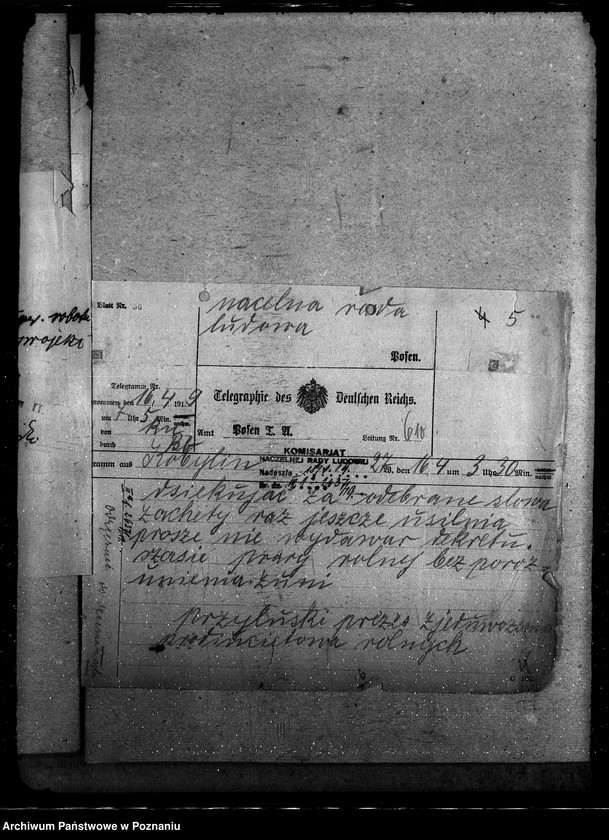 Blatt Nr.
nacelna rada
ludowa
4 5
Posen.
Telegramm Nr.
nommen den 16.4 191 9
um 7 Uhr 5 Min.
von
durch
Telegraphie des Deutschen Reichs.
Amt Posen T. A.
Leitung Nr. 610
KOMISARJAT
NACZELNEJ RADY LUDOWEJ
Nadeszło
Nr. dz.
gramm aus Kobylin 27 Ws. den 16 4 um 3 Uhr 30 Min.
dsiekujac za odebrane slowa
zachety raz jeszcze usilma
prosze nie wydawar dekretu.
szasie pracy rolnej bez poroz
umienia zuni
przyluski prezes zjednvozenia
prodincietowa rolnych
robote
projekt
Archiwum Państwowe w Poznaniu